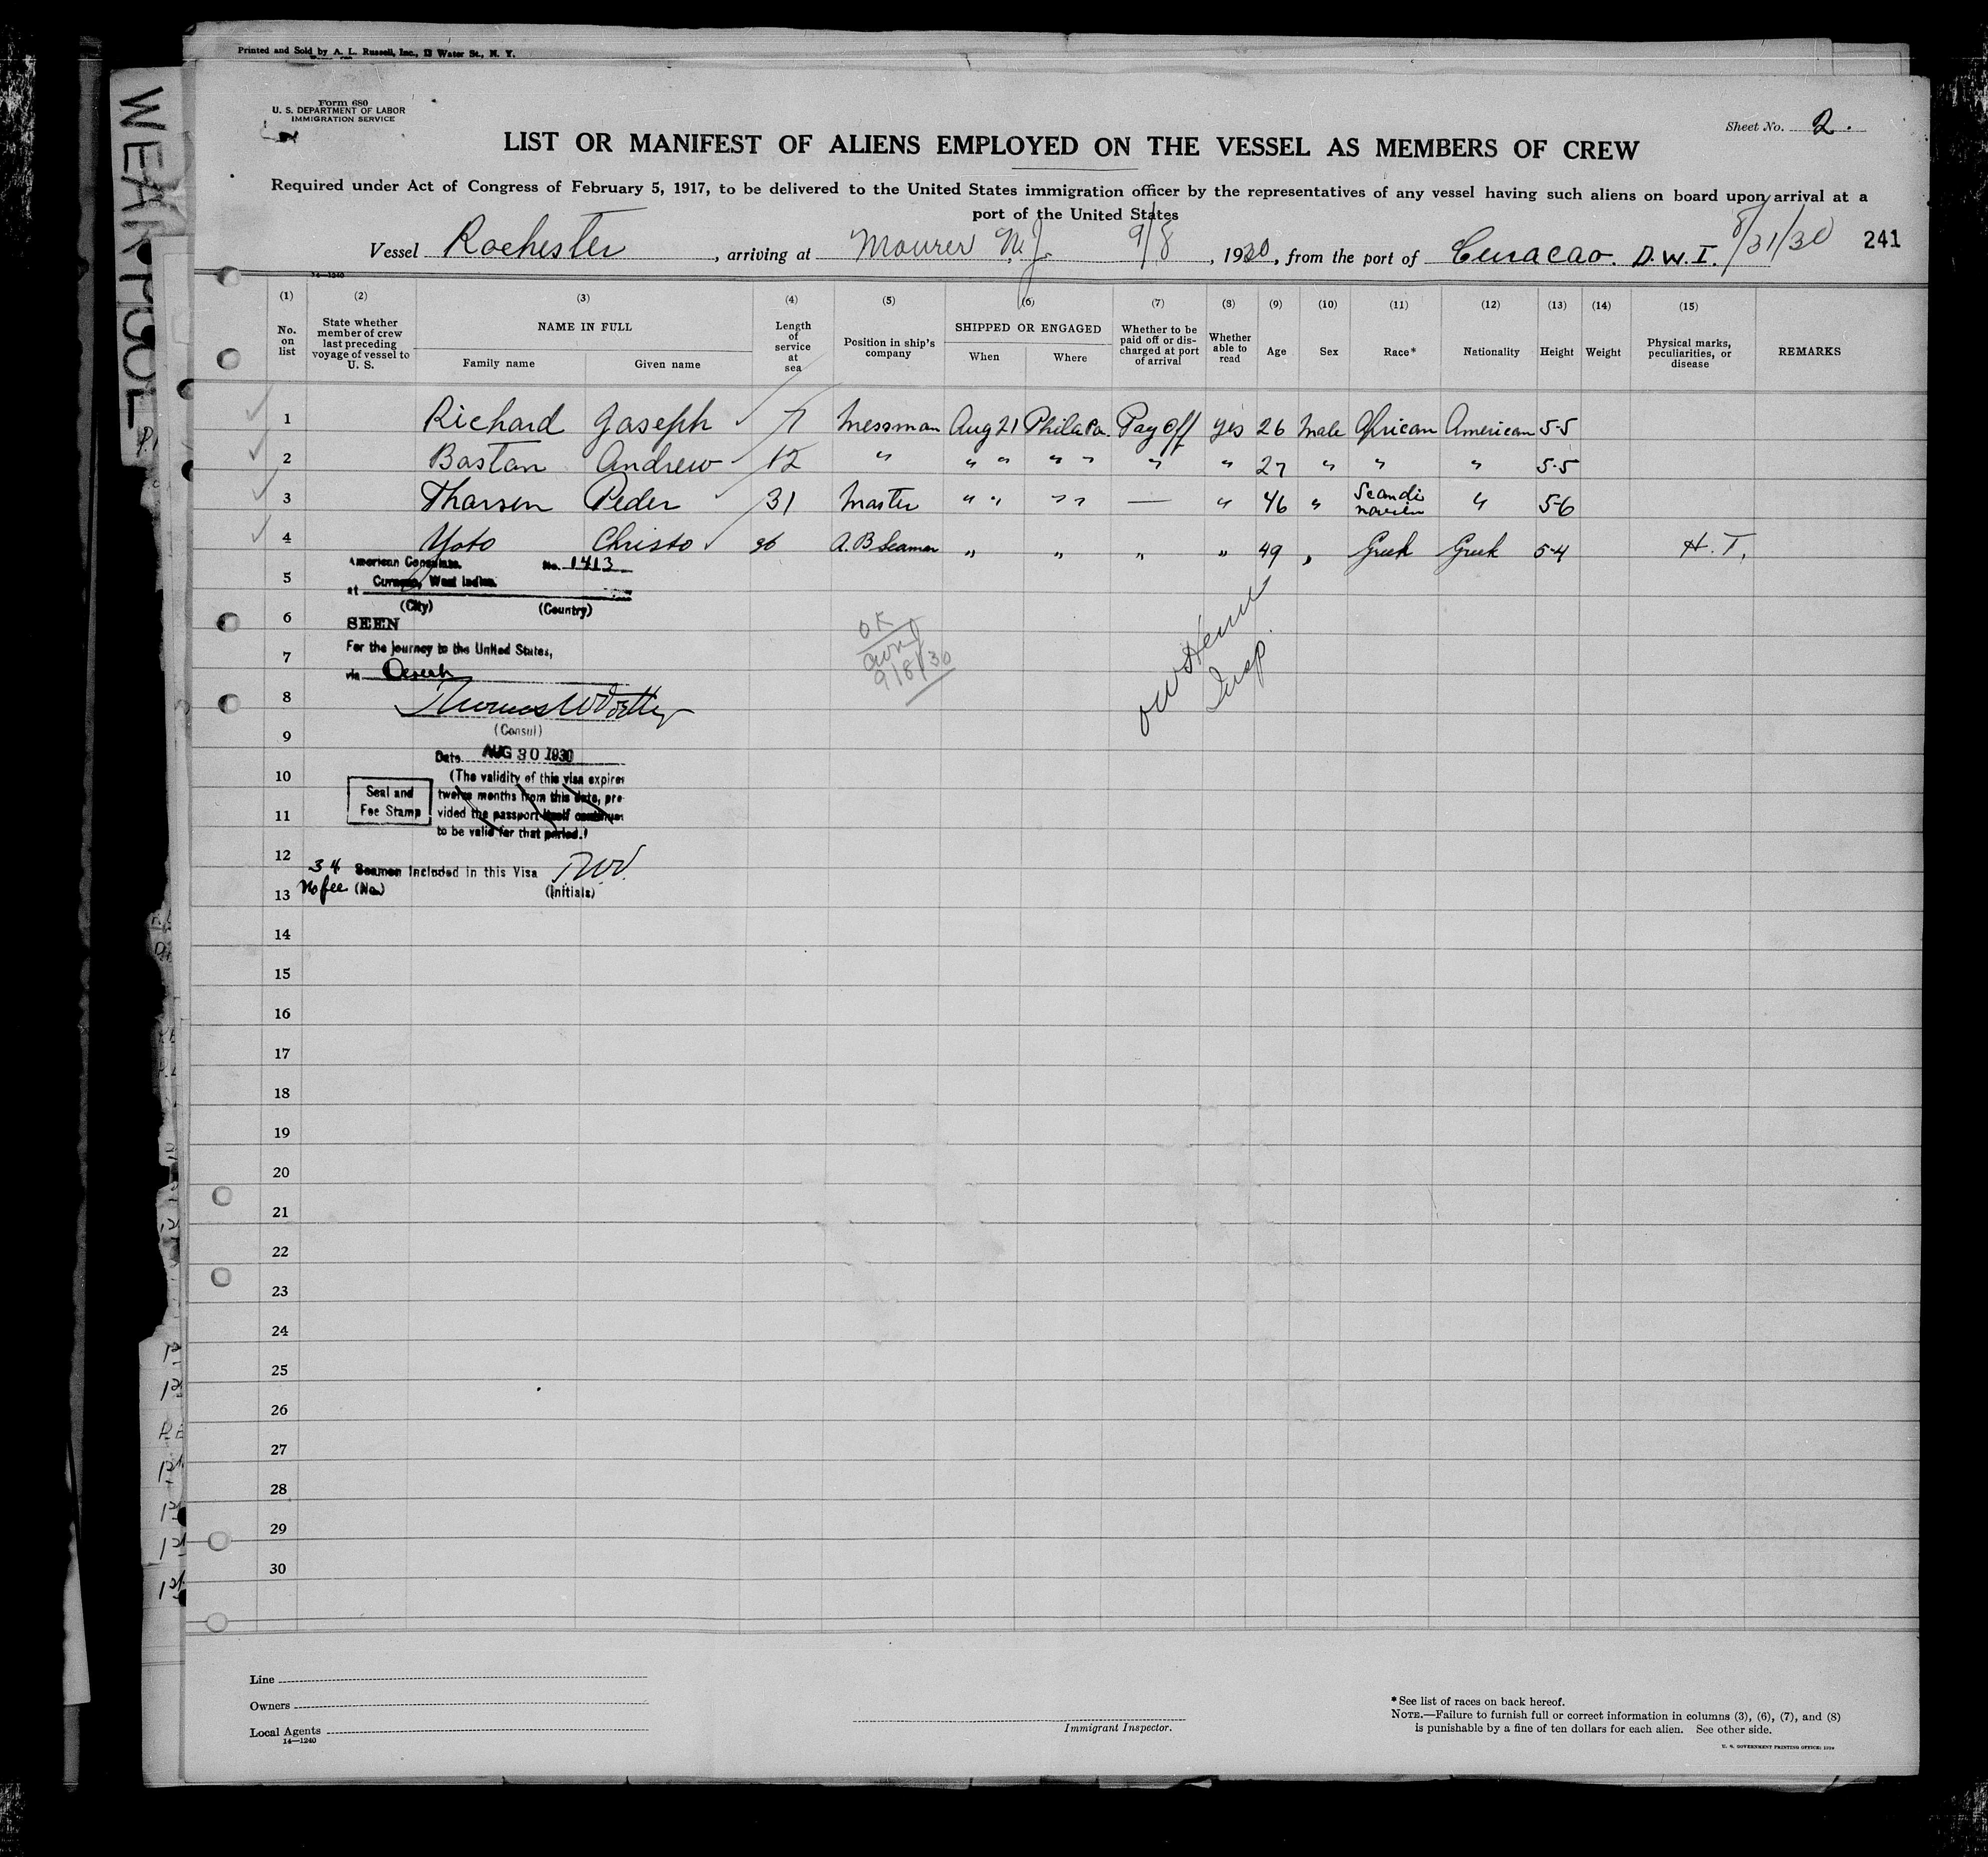 Printed and Sold by A. L. Russell, Inc., 13 Water St., N. Y.
WEAR POOL
Form 680
U. S. DEPARTMENT OF LABOR
IMMIGRATION SERVICE
Sheet No. 2.
LIST OR MANIFEST OF ALIENS EMPLOYED ON THE VESSEL AS MEMBERS OF CREW
Required under Act of Congress of February 5, 1917, to be delivered to the United States immigration officer by the representatives of any vessel having such aliens on board upon arrival at a
port of the United States
Vessel Rochester, arriving at Maurer N. J. 9/8, 1930, from the port of Curacao. D.W.I. 8/31/30 241
14—1240
(1) (2) (3) (4) (5) (6) (7) (8) (9) (10) (11) (12) (13) (14) (15)
No. on list
State whether member of crew last preceding voyage of vessel to U. S.
NAME IN FULL
Family name Given name
Length of service at sea
Position in ship's company
SHIPPED OR ENGAGED
When Where
Whether to be paid off or discharged at port of arrival
Whether able to read
Age Sex Race* Nationality Height Weight
Physical marks, peculiarities, or disease
REMARKS
1 Richard Joseph 7 Messman Aug 21 Phila Pa. Pay Off yes 26 Male African American 5-5
2 Bastan Andrew 12 " " " " " " " 27 " " " 5-5
3 Tharsen Peder 31 Master " " " " — " 46 " Scandinavien " 5-6
4 Yoto Christo 26 A. B Seaman " " " " 49 " Greek Greek 5-4 H. T.
American Consulate. No. 1413
at Curaçao, West Indies.
(City) (Country)
5
6
SEEN
For the journey to the United States,
7
via Direct
8
(Consul)
9
Date AUG 30 1930
10
(The validity of this visa expires
twelve months from this date, pro-
vided the passport itself continues
to be valid for that period.)
Seal and
Fee Stamp
11
12
34 Seamen Included in this Visa TWW.
No fee (No.) (Initials)
13
OK
9/8/30
Insp.
14
15
16
17
18
19
20
21
22
23
24
25
26
27
28
29
30
Line
Owners
Local Agents
14—1240
Immigrant Inspector.
*See list of races on back hereof.
NOTE.—Failure to furnish full or correct information in columns (3), (6), (7), and (8)
is punishable by a fine of ten dollars for each alien. See other side.
U. S. GOVERNMENT PRINTING OFFICE: 1926